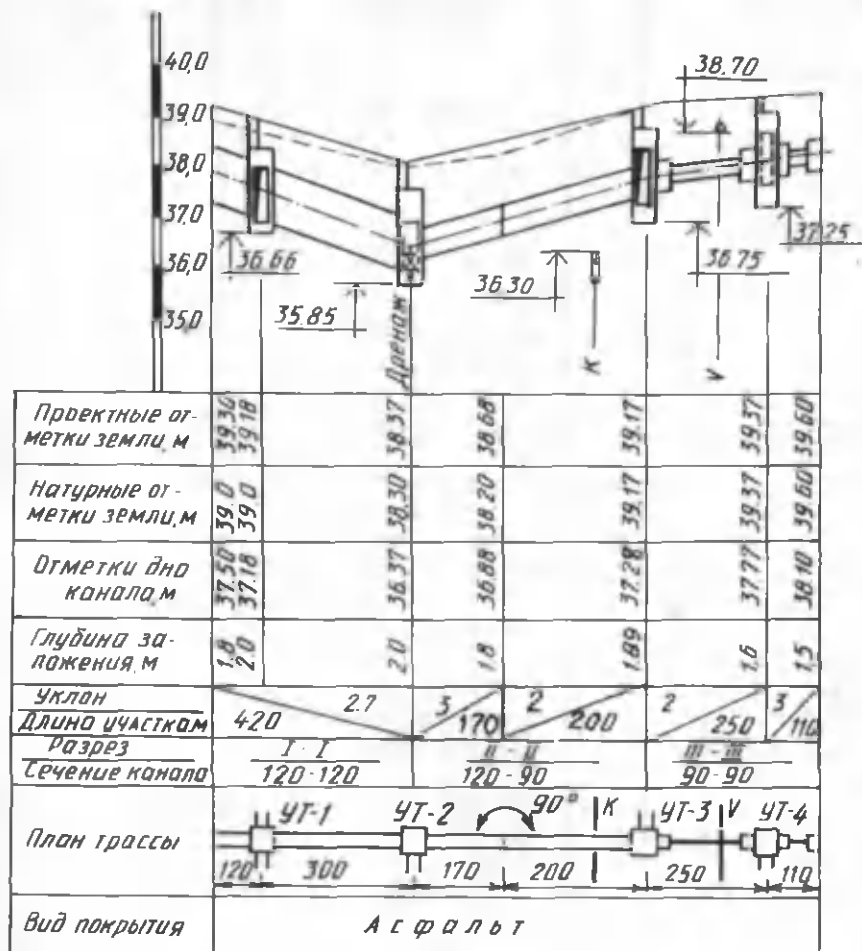 40,0
38.70
39,0
38,0
37,0
37.25
36.66
36.75
36,0
36.30
35.85
35,0
Дренаж
К
V
Проектные от-
метки земли, м
39.30 39.18 38.37 38.68 39.17 39.37 39.60
Натурные от-
метки земли, м
39.0 39.0 38.30 38.20 39.17 39.37 39.60
Отметки дна
канала, м
37.50 37.18 36.37 36.88 37.28 37.77 38.10
Глубина за-
ложения, м
1.8 2.0 2.0 1.8 1.89 1.6 1.5
Уклон
2.7 3 2 2 3
Длина участка м
420 170 200 250 110
Разрез
I - I II - II III - III
Сечение канала
120-120 120-90 90-90
План трассы
УТ-1 УТ-2 90° К УТ-3 V УТ-4
120 300 170 200 250 110
Вид покрытия
Асфальт